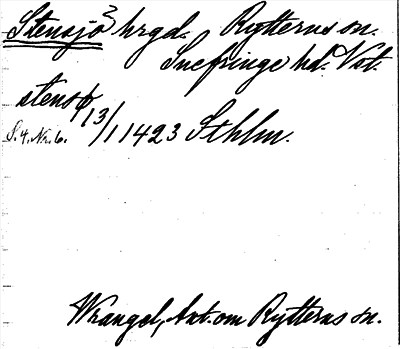 Stensjö hrgd. Rytterns sn.
Snefringe hd. Vstl.
stensø
S. 4. Nr. 6. 13/1 1423 Sthlm.
Wrangel, Ant. om Rytterns sn.